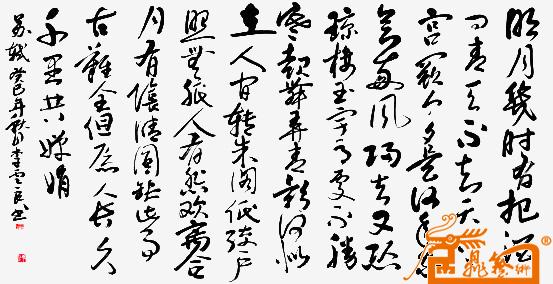 明月幾时有把酒
问青天不知天上
宫阙今夕是何年我
欲乘风归去又恐
琼楼玉宇高处不胜
寒起舞弄清影何似
在人间转朱阁低绮户
照無眠人有悲欢离合
月有阴晴圆缺此事
古难全但愿人长久
千里共婵娟
苏轼 癸巳年秋月李云